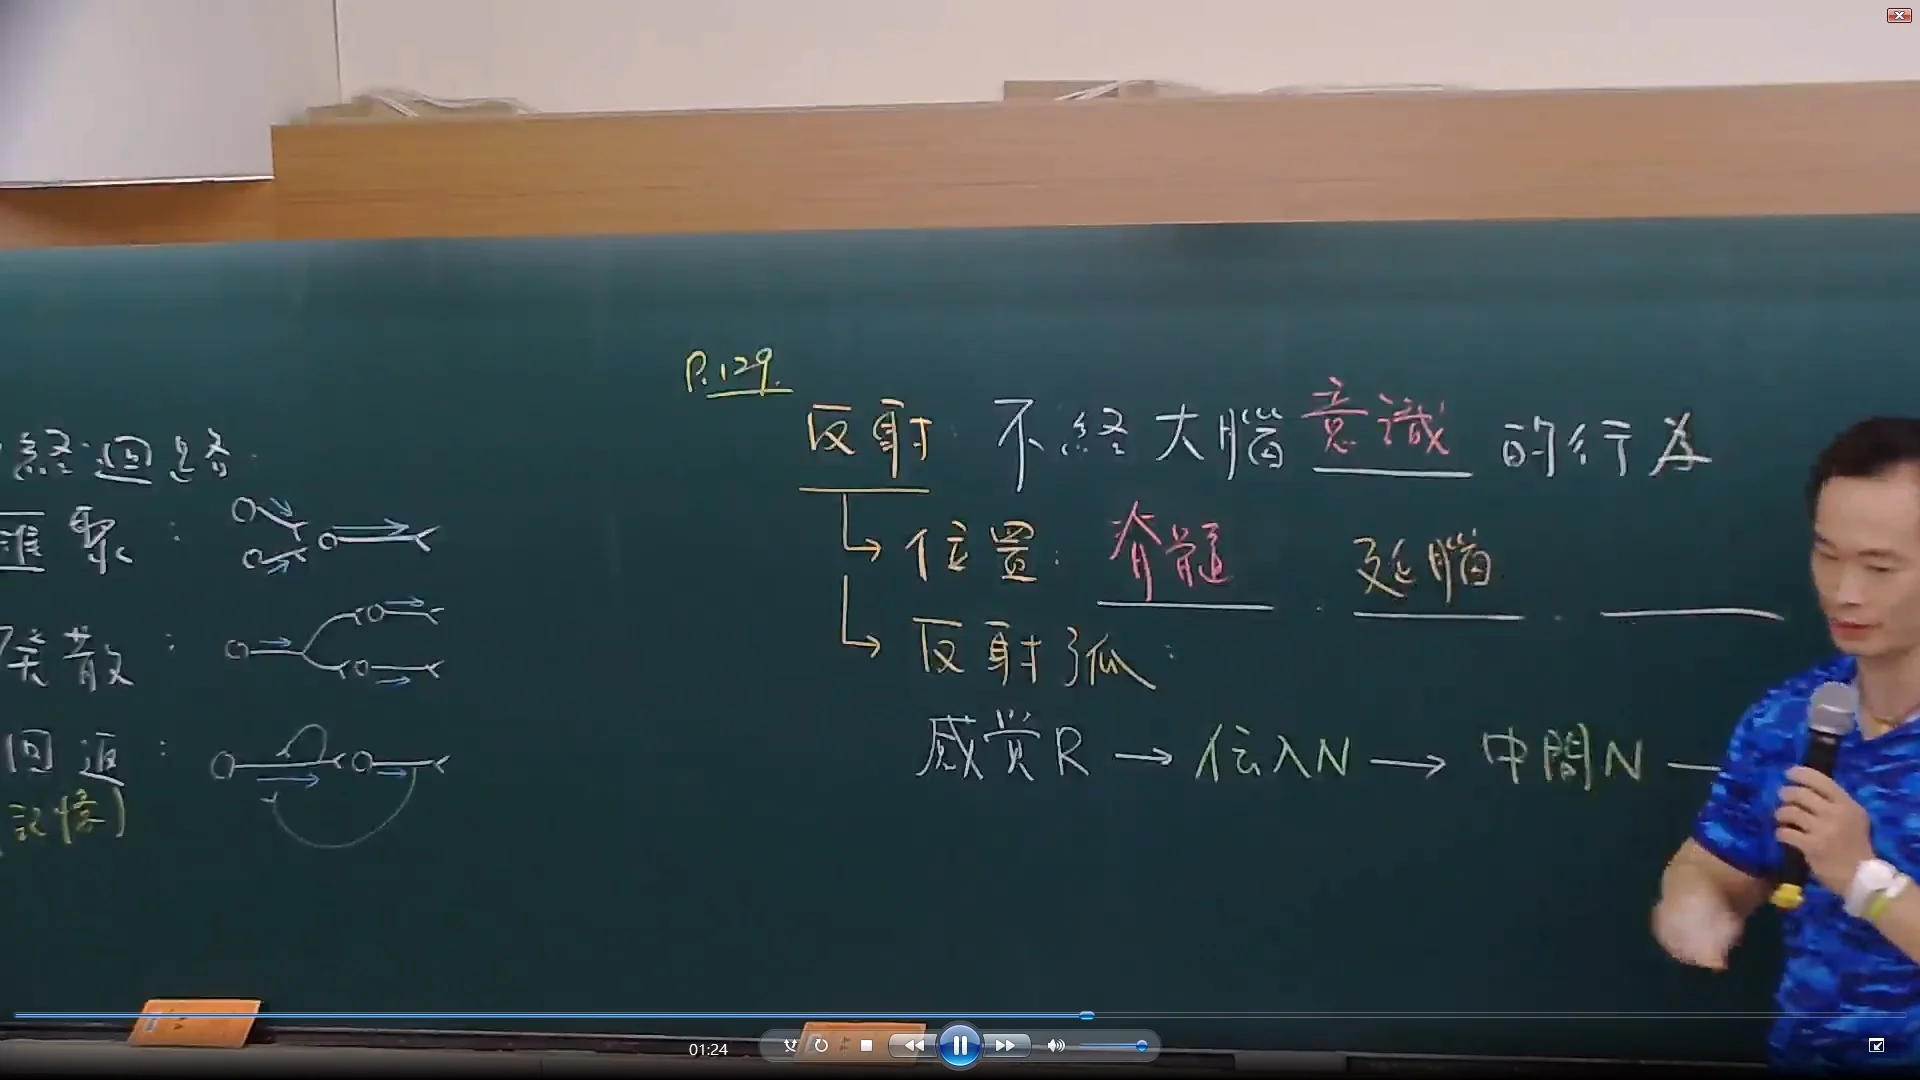 經迴路
匯聚：
發散：
回返：
(記憶)
P.129.
反射：不經大腦意識的行為
位置：脊髓．延腦．
反射弧：
感覚R → 伝入N → 中間N
01:24